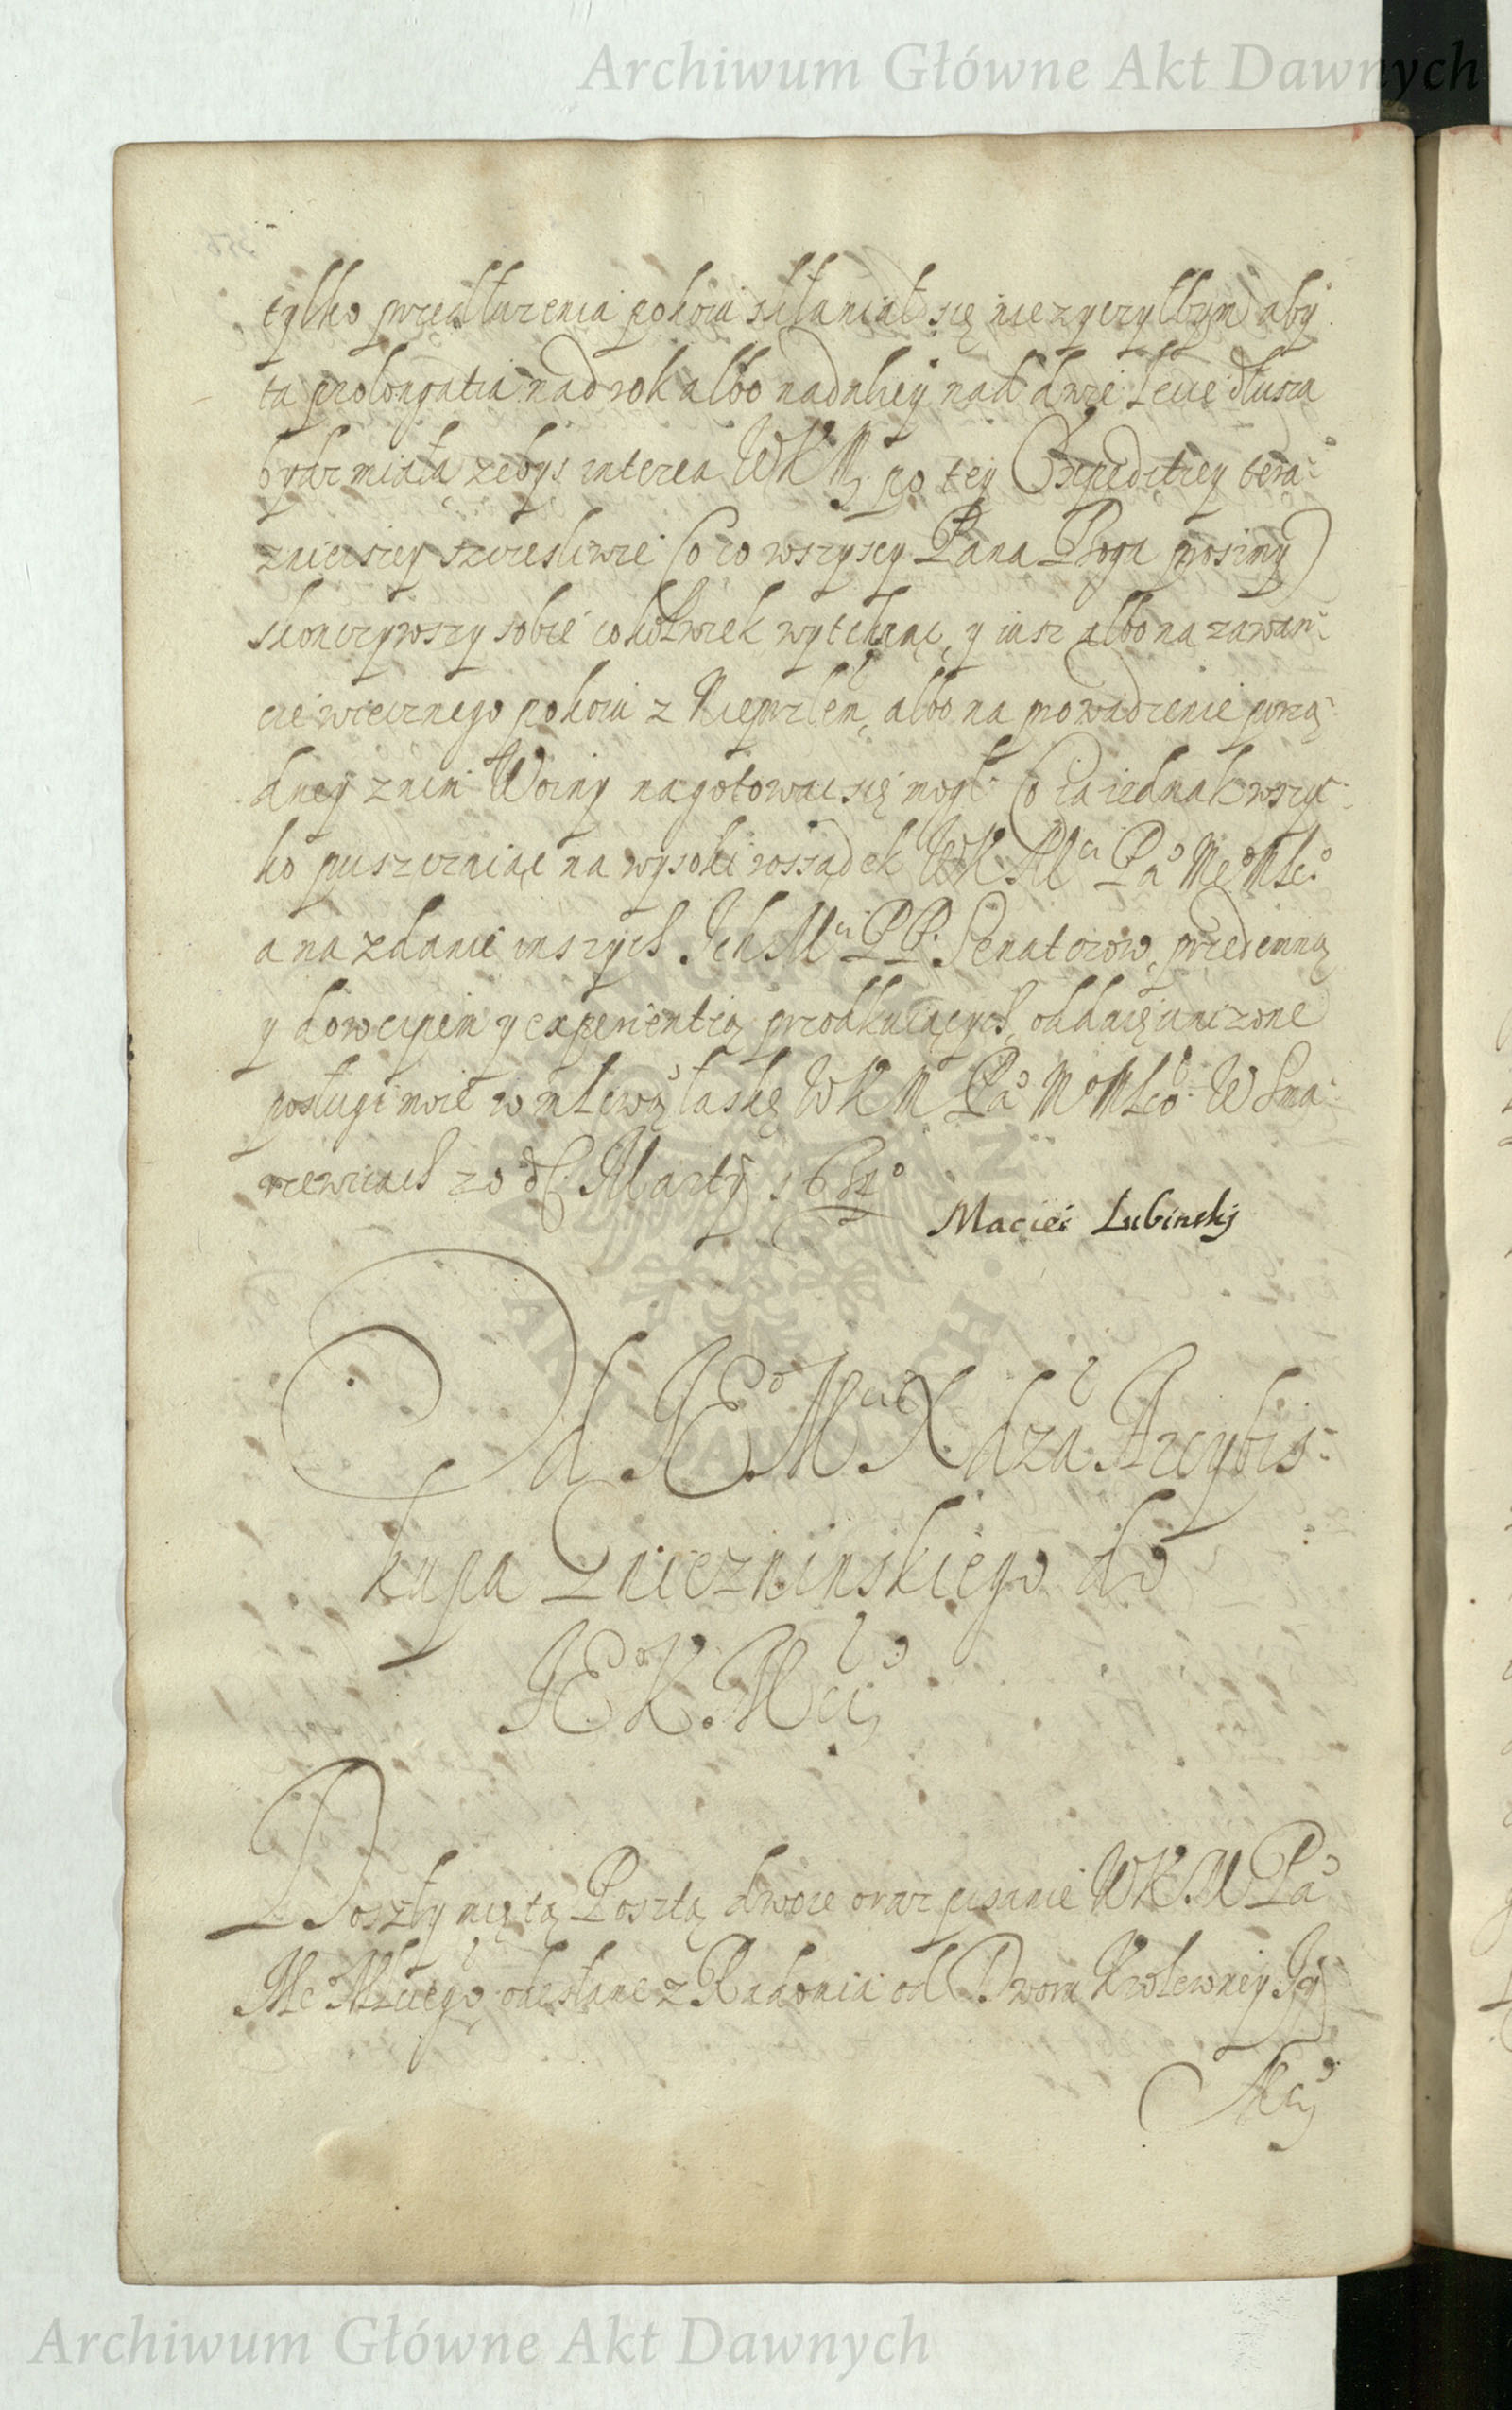 Archiwum Główne Akt Dawnych
tylko przedłuzenia pokoiu skłaniał się nie zyczyłbym aby
ta prolongatia nad rok albo nadaliey nad dwie lecie dłusza
bydz miała zebys interea WKM po tey Expeditiey tera-
znieiszey szczesliwie (o co wszyscy Pana Boga prosimy)
skonczywszy sobie cokolwiek wytchnąc, y iusz albo na zawar-
cie wiecznego pokoiu z Nieprzlem, albo na prowadzenie porzą-
dney z nim Woiny nagotowac się mogł. Co ia iednak wszyt-
ko puszczaiąc na wysoki rossądek WKMci Pa Me Młco
a na zdanie inszych Ich Mci PP. Senatorow, przedemną
y dowcipem y experientią przodkuiących, oddaię unizone
posługi moie w młciwą łaskę WKM Pa M Młco. W Sma-
rzewicach 20 d. Marty
Maciei Lubinskj
Od JE Mci X dza Arcybis-
kupa Gniezninskiego do
JE K. Mci
Doszły mię tą Posztą dwoie oraz pisanie WK.M Pa
Me Młciego odesłane z Radomia od Dworu Krolewney Jey
Mci
Archiwum Główne Akt Dawnych